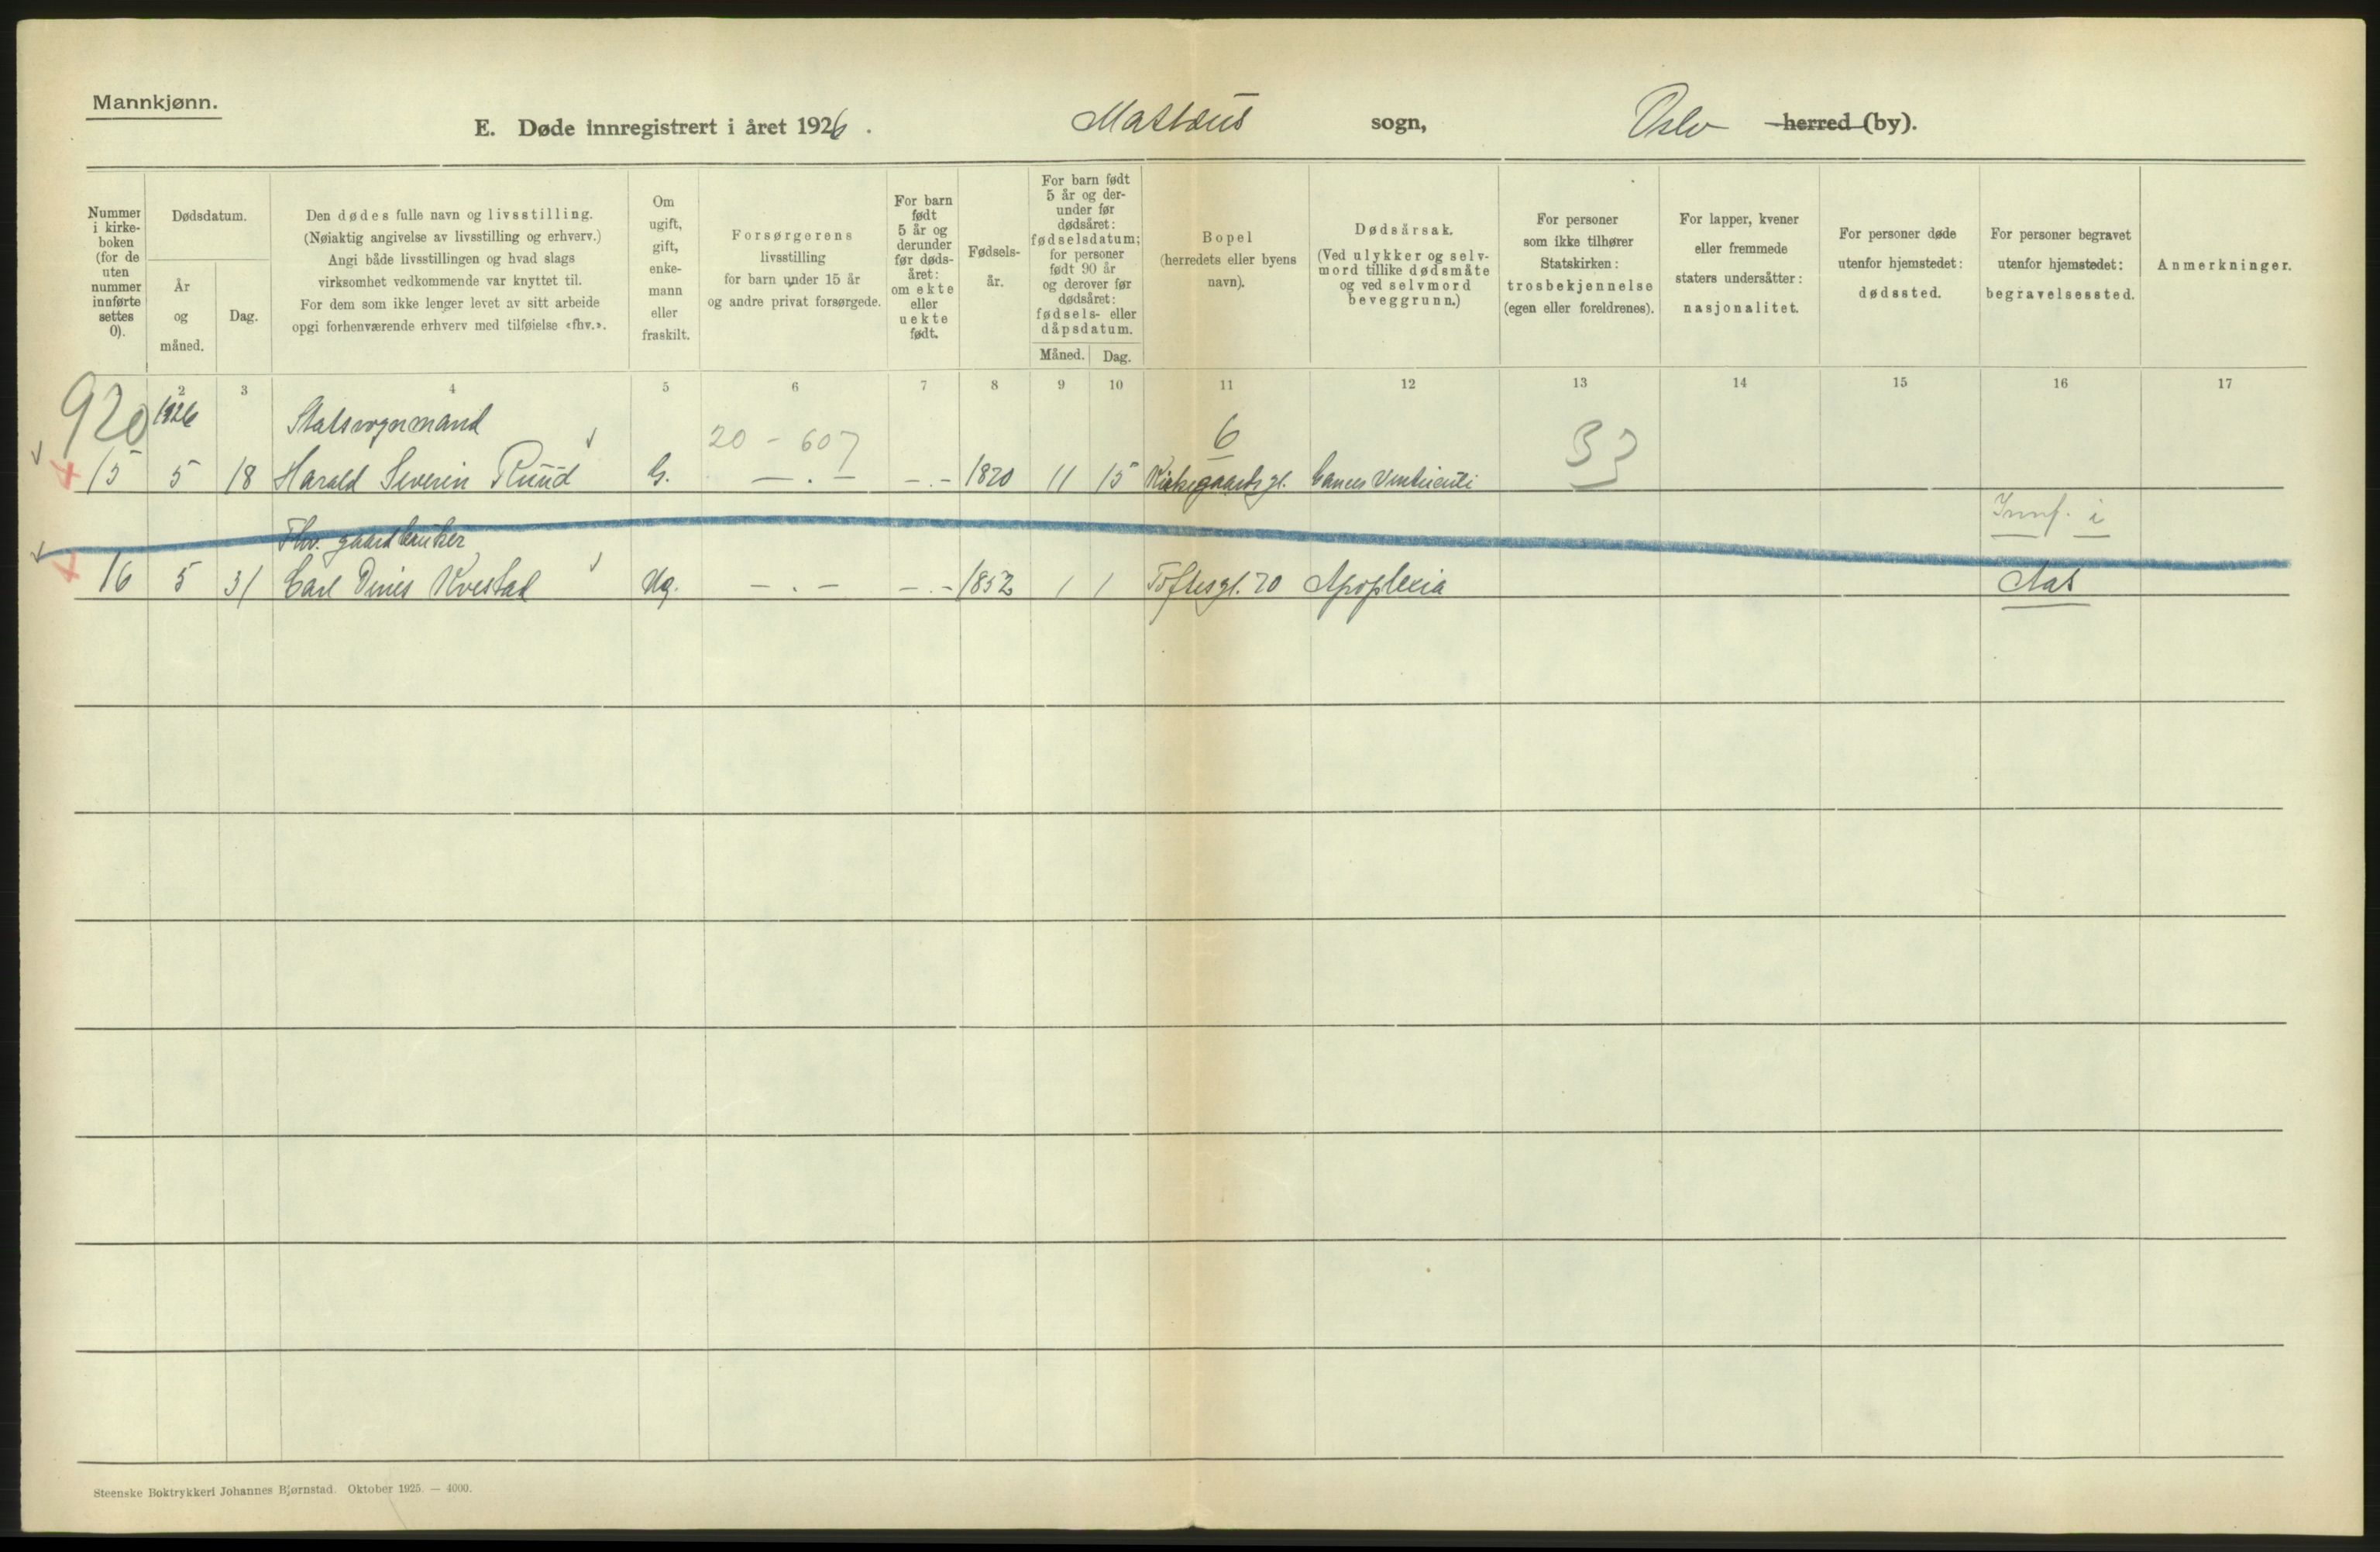 Mannkjønn.
E. Døde innregistrert i året 1926.
Matteus sogn,
Oslo herred (by).
Nummer i kirke-boken (for de uten nummer innførte settes 0).
Dødsdatum.
År og måned.
Dag.
Den dødes fulle navn og livsstilling.
(Nøiaktig angivelse av livsstilling og erhverv.)
Angi både livsstillingen og hvad slags
virksomhet vedkommende var knyttet til.
For dem som ikke lenger levet av sitt arbeide
opgi forhenværende erhverv med tilføielse «fhv.».
Om ugift, gift, enke-mann eller fraskilt.
Forsørgerens
livsstilling
for barn under 15 år
og andre privat forsørgede.
For barn født 5 år og derunder før døds-året: om ekte eller uekte født.
Fødsels-år.
For barn født 5 år og der-under før dødsåret: fødselsdatum; for personer født 90 år og derover før dødsåret: fødsels- eller dåpsdatum.
Måned.
Dag.
Bopel
(herredets eller byens
navn).
Dødsårsak.
(Ved ulykker og selv-
mord tillike dødsmåte
og ved selvmord
beveggrunn.)
For personer
som ikke tilhører
Statskirken:
trosbekjennelse
(egen eller foreldrenes).
For lapper, kvener
eller fremmede
staters undersåtter:
nasjonalitet.
For personer døde
utenfor hjemstedet:
dødssted.
For personer begravet
utenfor hjemstedet:
begravelsessted.
Anmerkninger.
2 3 4 5 6 7 8 9 10 11 12 13 14 15 16 17
920 1926 Statsvognmand 20 - 607 6 33
15 5 18 Harald Severin Ruud G. — . — - . - 1870 11 15 Kirkegaardsgt. Cancer Ventriculi
Fhv. gaardbruker Innf. i
16 5 31 Carl Dines Kvestad Ug. — . — — . - 1852 1 1 Toftesgt. 70 Apoplexia Aas
Steenske Boktrykkeri Johannes Bjørnstad. Oktober 1925. — 4000.